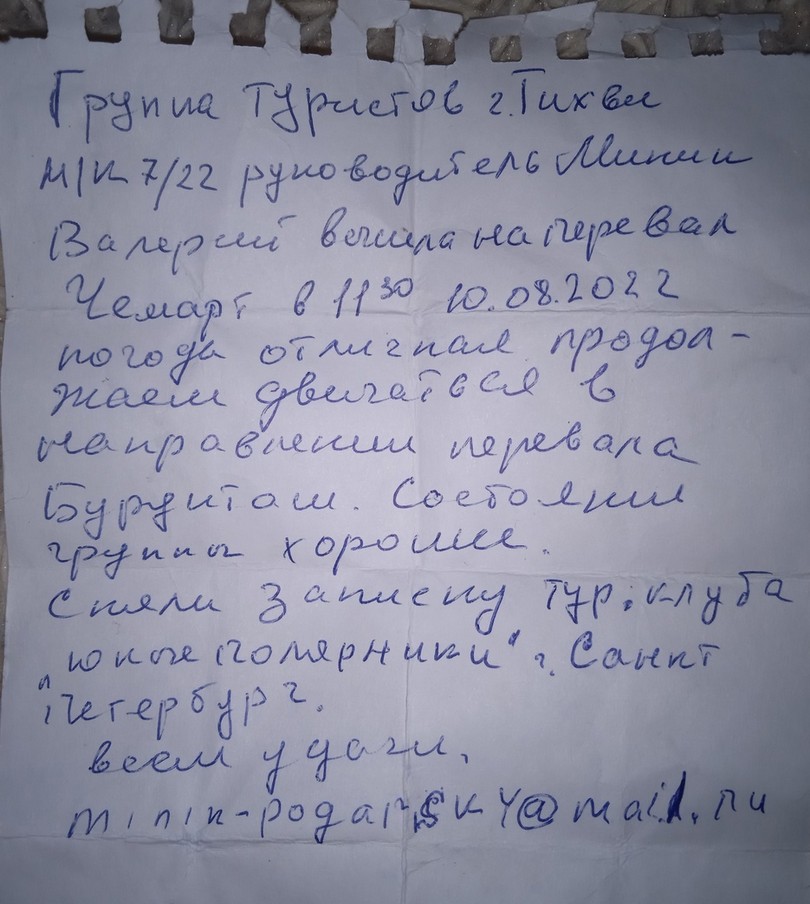 Группа туристов г. Тихвин
М/К 7/22 руководитель Минин
Валерий вышла на перевал
Чемарт в 11 30 10.08.2022
погода отличная продол-
жаем двигаться в
направлении перевала
Бурунташ. Состояние
группы хорошее.
Сняли записку тур. клуба
"юные полярники" г. Санкт
Петербург.
всем удачи.
minin-podarsky@mail.ru